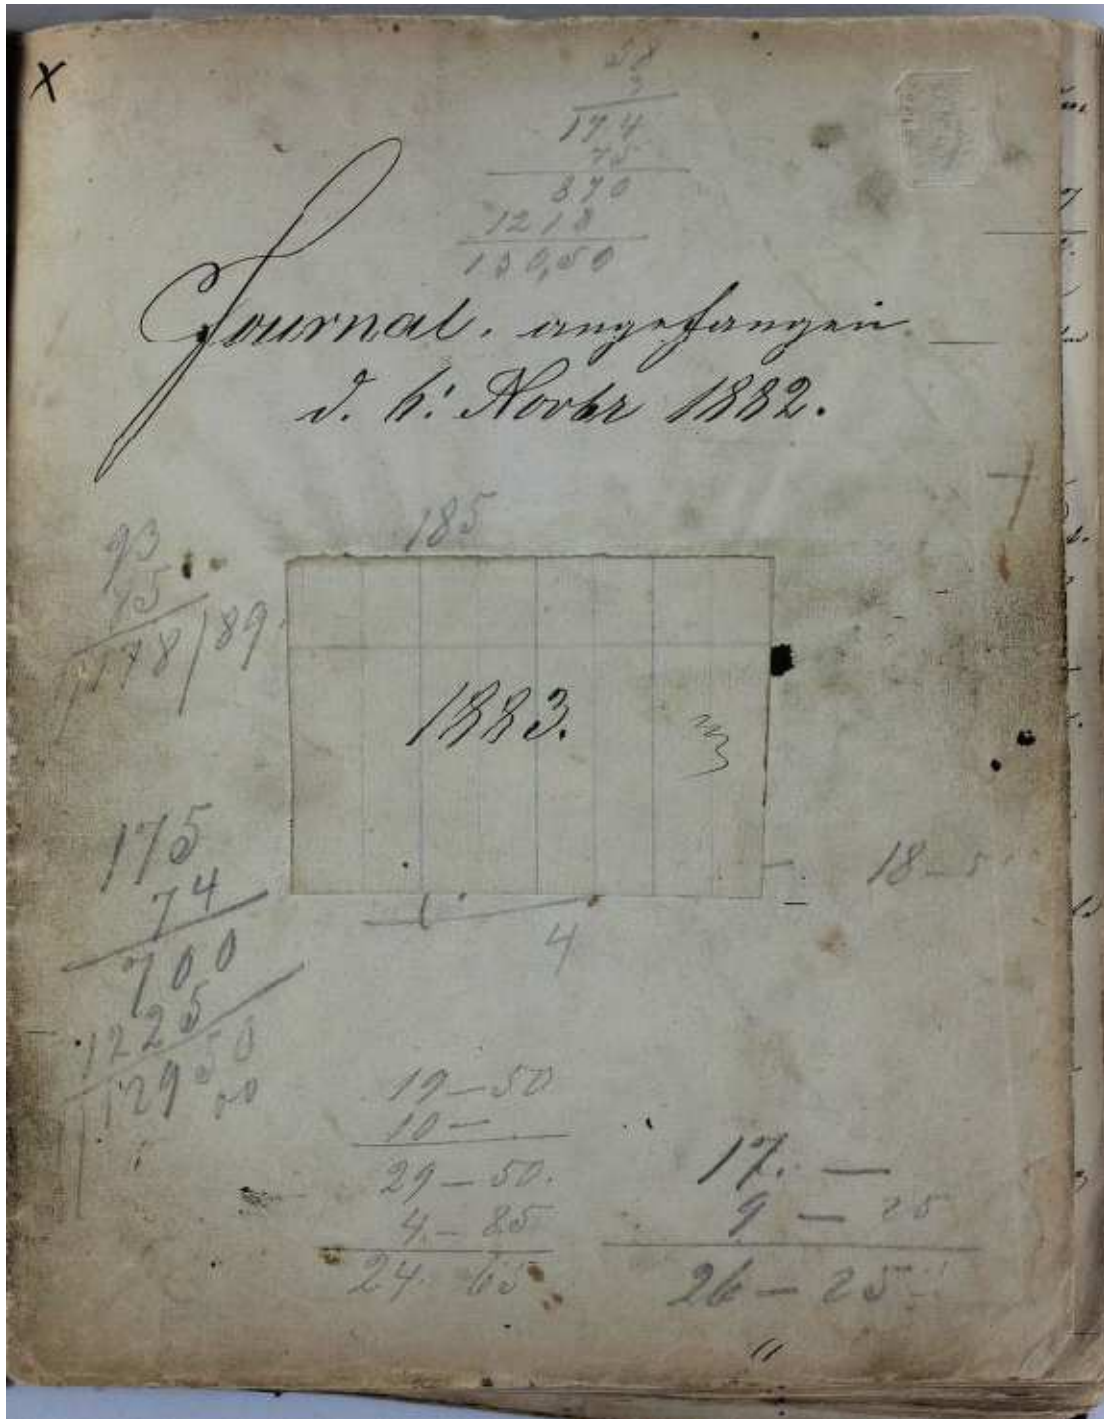 X
58
3
174
75
870
1218
130,50
Journal. angefangen
d. 6! Novbr 1882.
185
93
75
178/89.
1883.
175
74
700
1225
12950
4
18—5
19—50
10—
29—50.
4.—85
24. 65
17. —
9 — 25
26 — 25